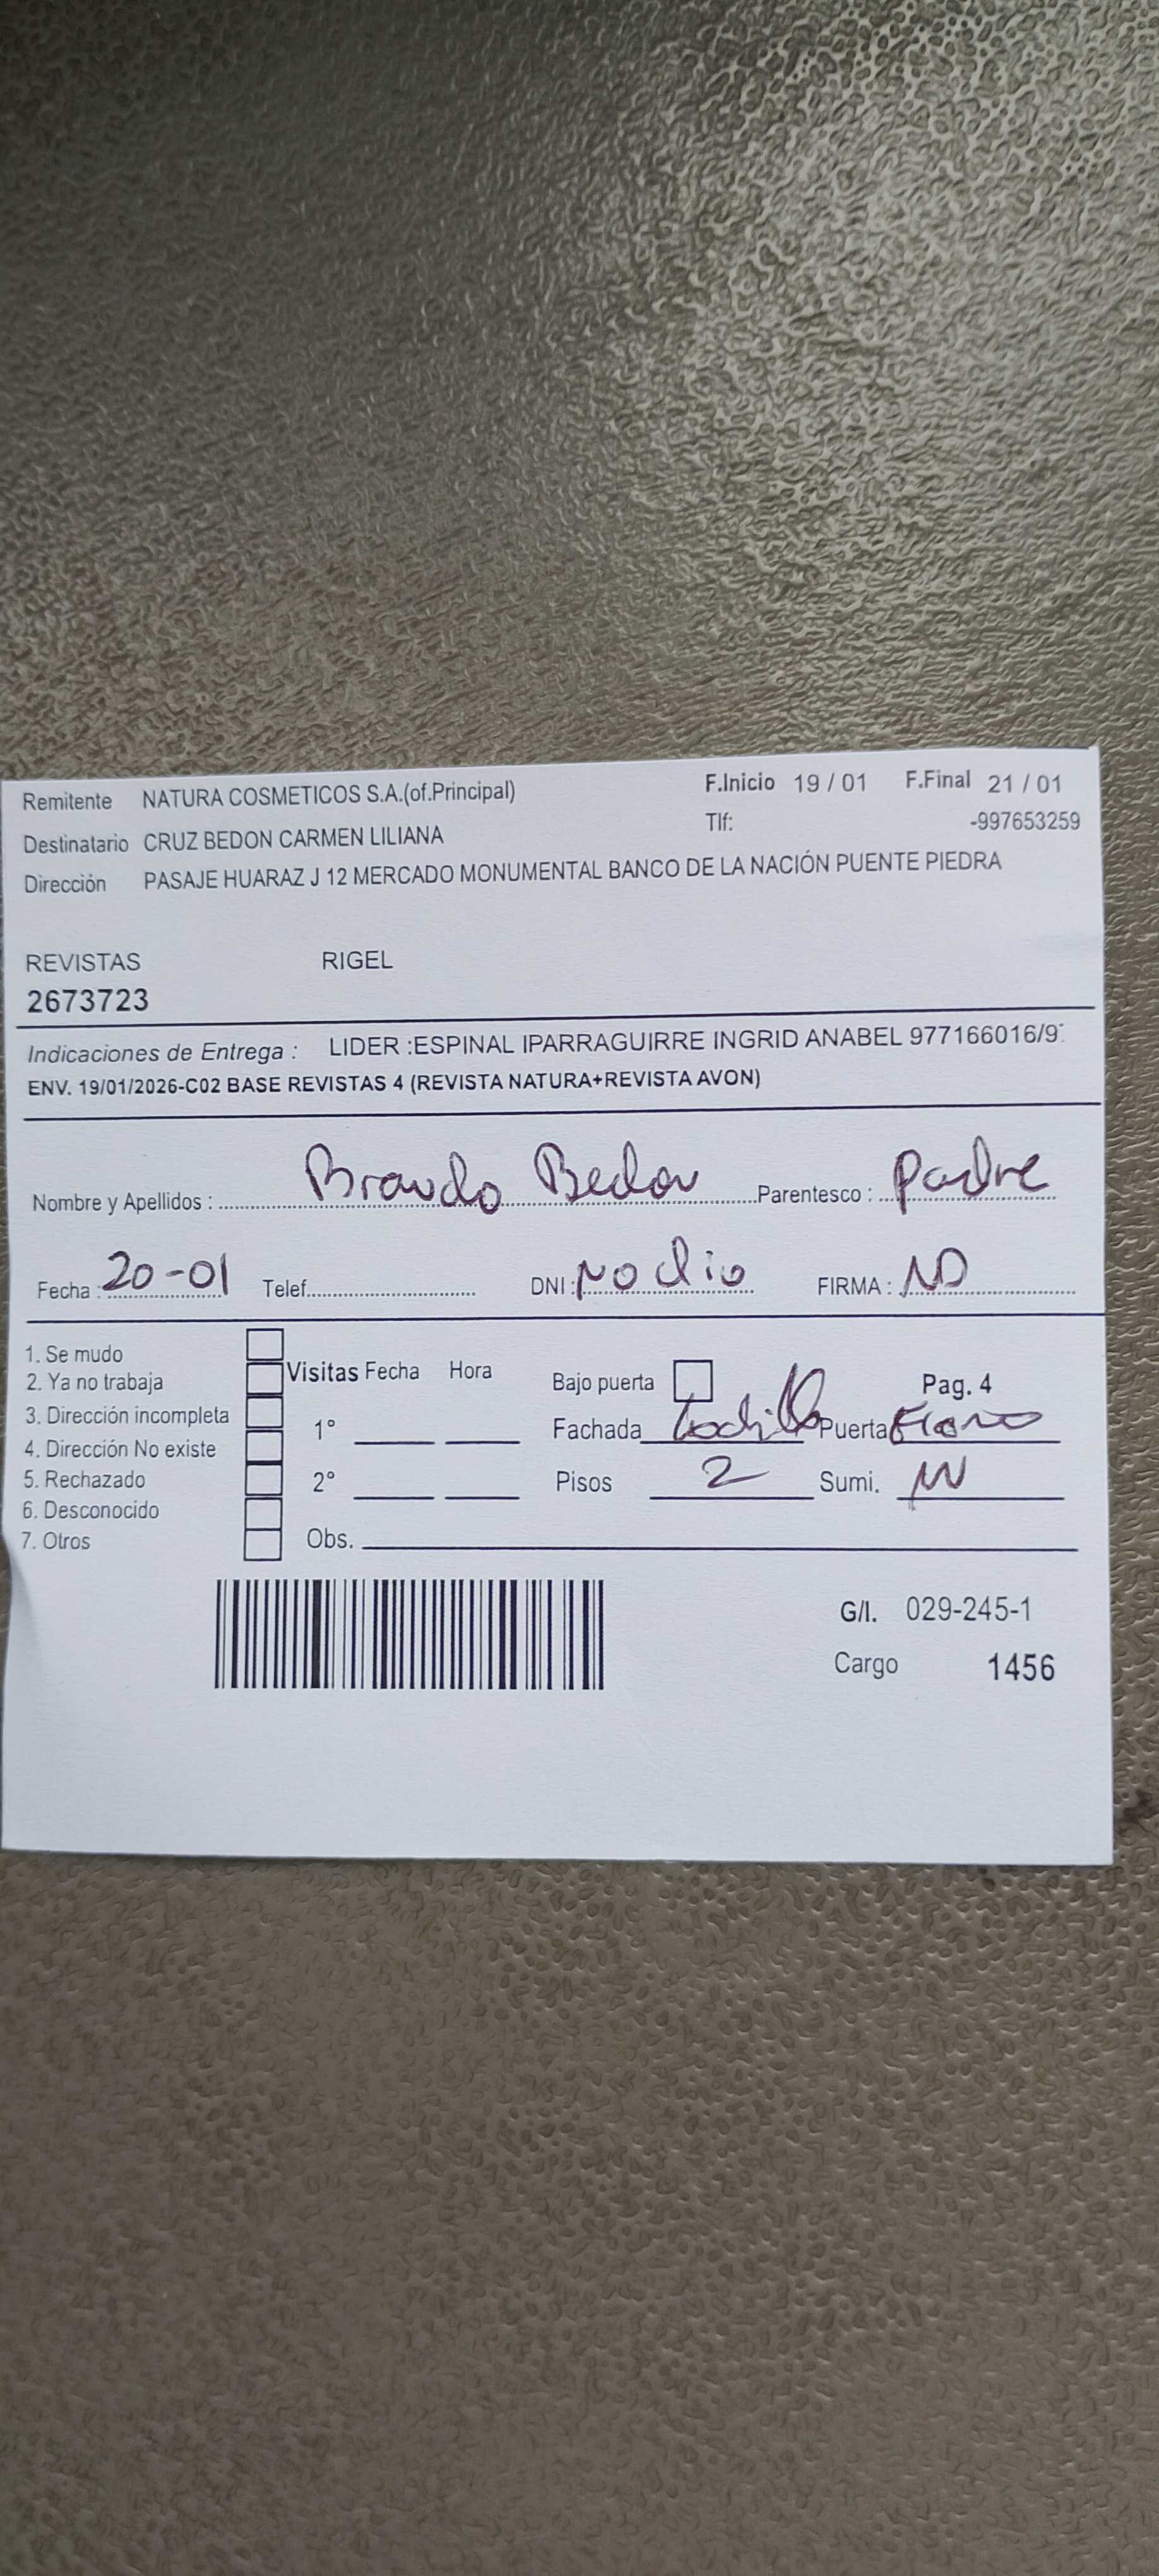 Remitente NATURA COSMETICOS S.A.(of.Principal) F.Inicio 19 / 01 F.Final 21 / 01
Destinatario CRUZ BEDON CARMEN LILIANA Tlf: -997653259
Dirección PASAJE HUARAZ J 12 MERCADO MONUMENTAL BANCO DE LA NACIÓN PUENTE PIEDRA
REVISTAS RIGEL
2673723
Indicaciones de Entrega : LIDER :ESPINAL IPARRAGUIRRE INGRID ANABEL 977166016/9
ENV. 19/01/2026-C02 BASE REVISTAS 4 (REVISTA NATURA+REVISTA AVON)
Nombre y Apellidos : Brando Bedon Parentesco : Padre
Fecha : 20-01 Telef. DNI : No dio FIRMA : ND
1. Se mudo
2. Ya no trabaja Visitas Fecha Hora Bajo puerta Pag. 4
3. Dirección incompleta 1° Fachada Ladrillo Puerta Fierro
4. Dirección No existe
5. Rechazado 2° Pisos 2 Sumi.
6. Desconocido
7. Otros Obs.
G/I. 029-245-1
Cargo 1456